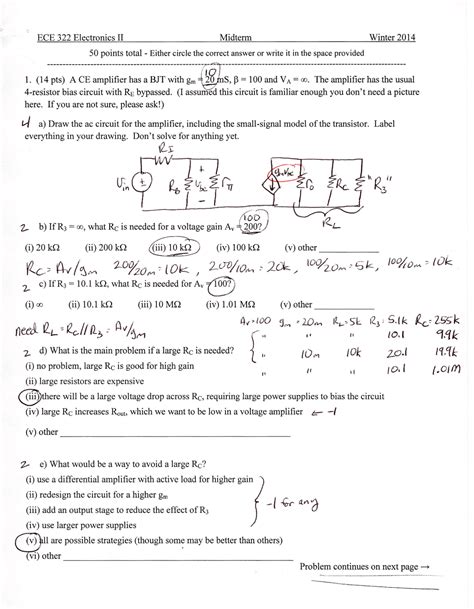 ECE 322 Electronics II Midterm Winter 2014
50 points total - Either circle the correct answer or write it in the space provided
10
1. (14 pts) A CE amplifier has a BJT with gm = 20 mS, β = 100 and VA = ∞. The amplifier has the usual
4-resistor bias circuit with RE bypassed. (I assumed this circuit is familiar enough you don't need a picture
here. If you are not sure, please ask!)
4 a) Draw the ac circuit for the amplifier, including the small-signal model of the transistor. Label
everything in your drawing. Don't solve for anything yet.
RI
Vin RB + vbe - rπ gmvbe ro RC "R3"
RL
100
2 b) If R3 = ∞, what RC is needed for a voltage gain Av = 200?
(i) 20 kΩ (ii) 200 kΩ (iii) 10 kΩ (iv) 100 kΩ (v) other
RC = Av/gm 200/20m = 10k, 200/10m = 20k, 100/20m = 5k, 100/10m = 10k
2 c) If R3 = 10.1 kΩ, what RC is needed for Av = 100?
(i) ∞ (ii) 10.1 kΩ (iii) 10 MΩ (iv) 1.01 MΩ (v) other
Av=100 gm=20m RL=5k R3=5.1k RC=255k
need RL = RC//R3 = Av/gm " " " 10.1 9.9k
2 d) What is the main problem if a large RC is needed? " 10m 10k 20.1 19.9k
(i) no problem, large RC is good for high gain " " " 10.1 1.01M
(ii) large resistors are expensive
(iii) there will be a large voltage drop across RC, requiring large power supplies to bias the circuit
(iv) large RC increases Rout, which we want to be low in a voltage amplifier ← -1
(v) other
2 e) What would be a way to avoid a large RC?
(i) use a differential amplifier with active load for higher gain
(ii) redesign the circuit for a higher gm
(iii) add an output stage to reduce the effect of R3 -1 for any
(iv) use larger power supplies
(v) all are possible strategies (though some may be better than others)
(vi) other
Problem continues on next page →